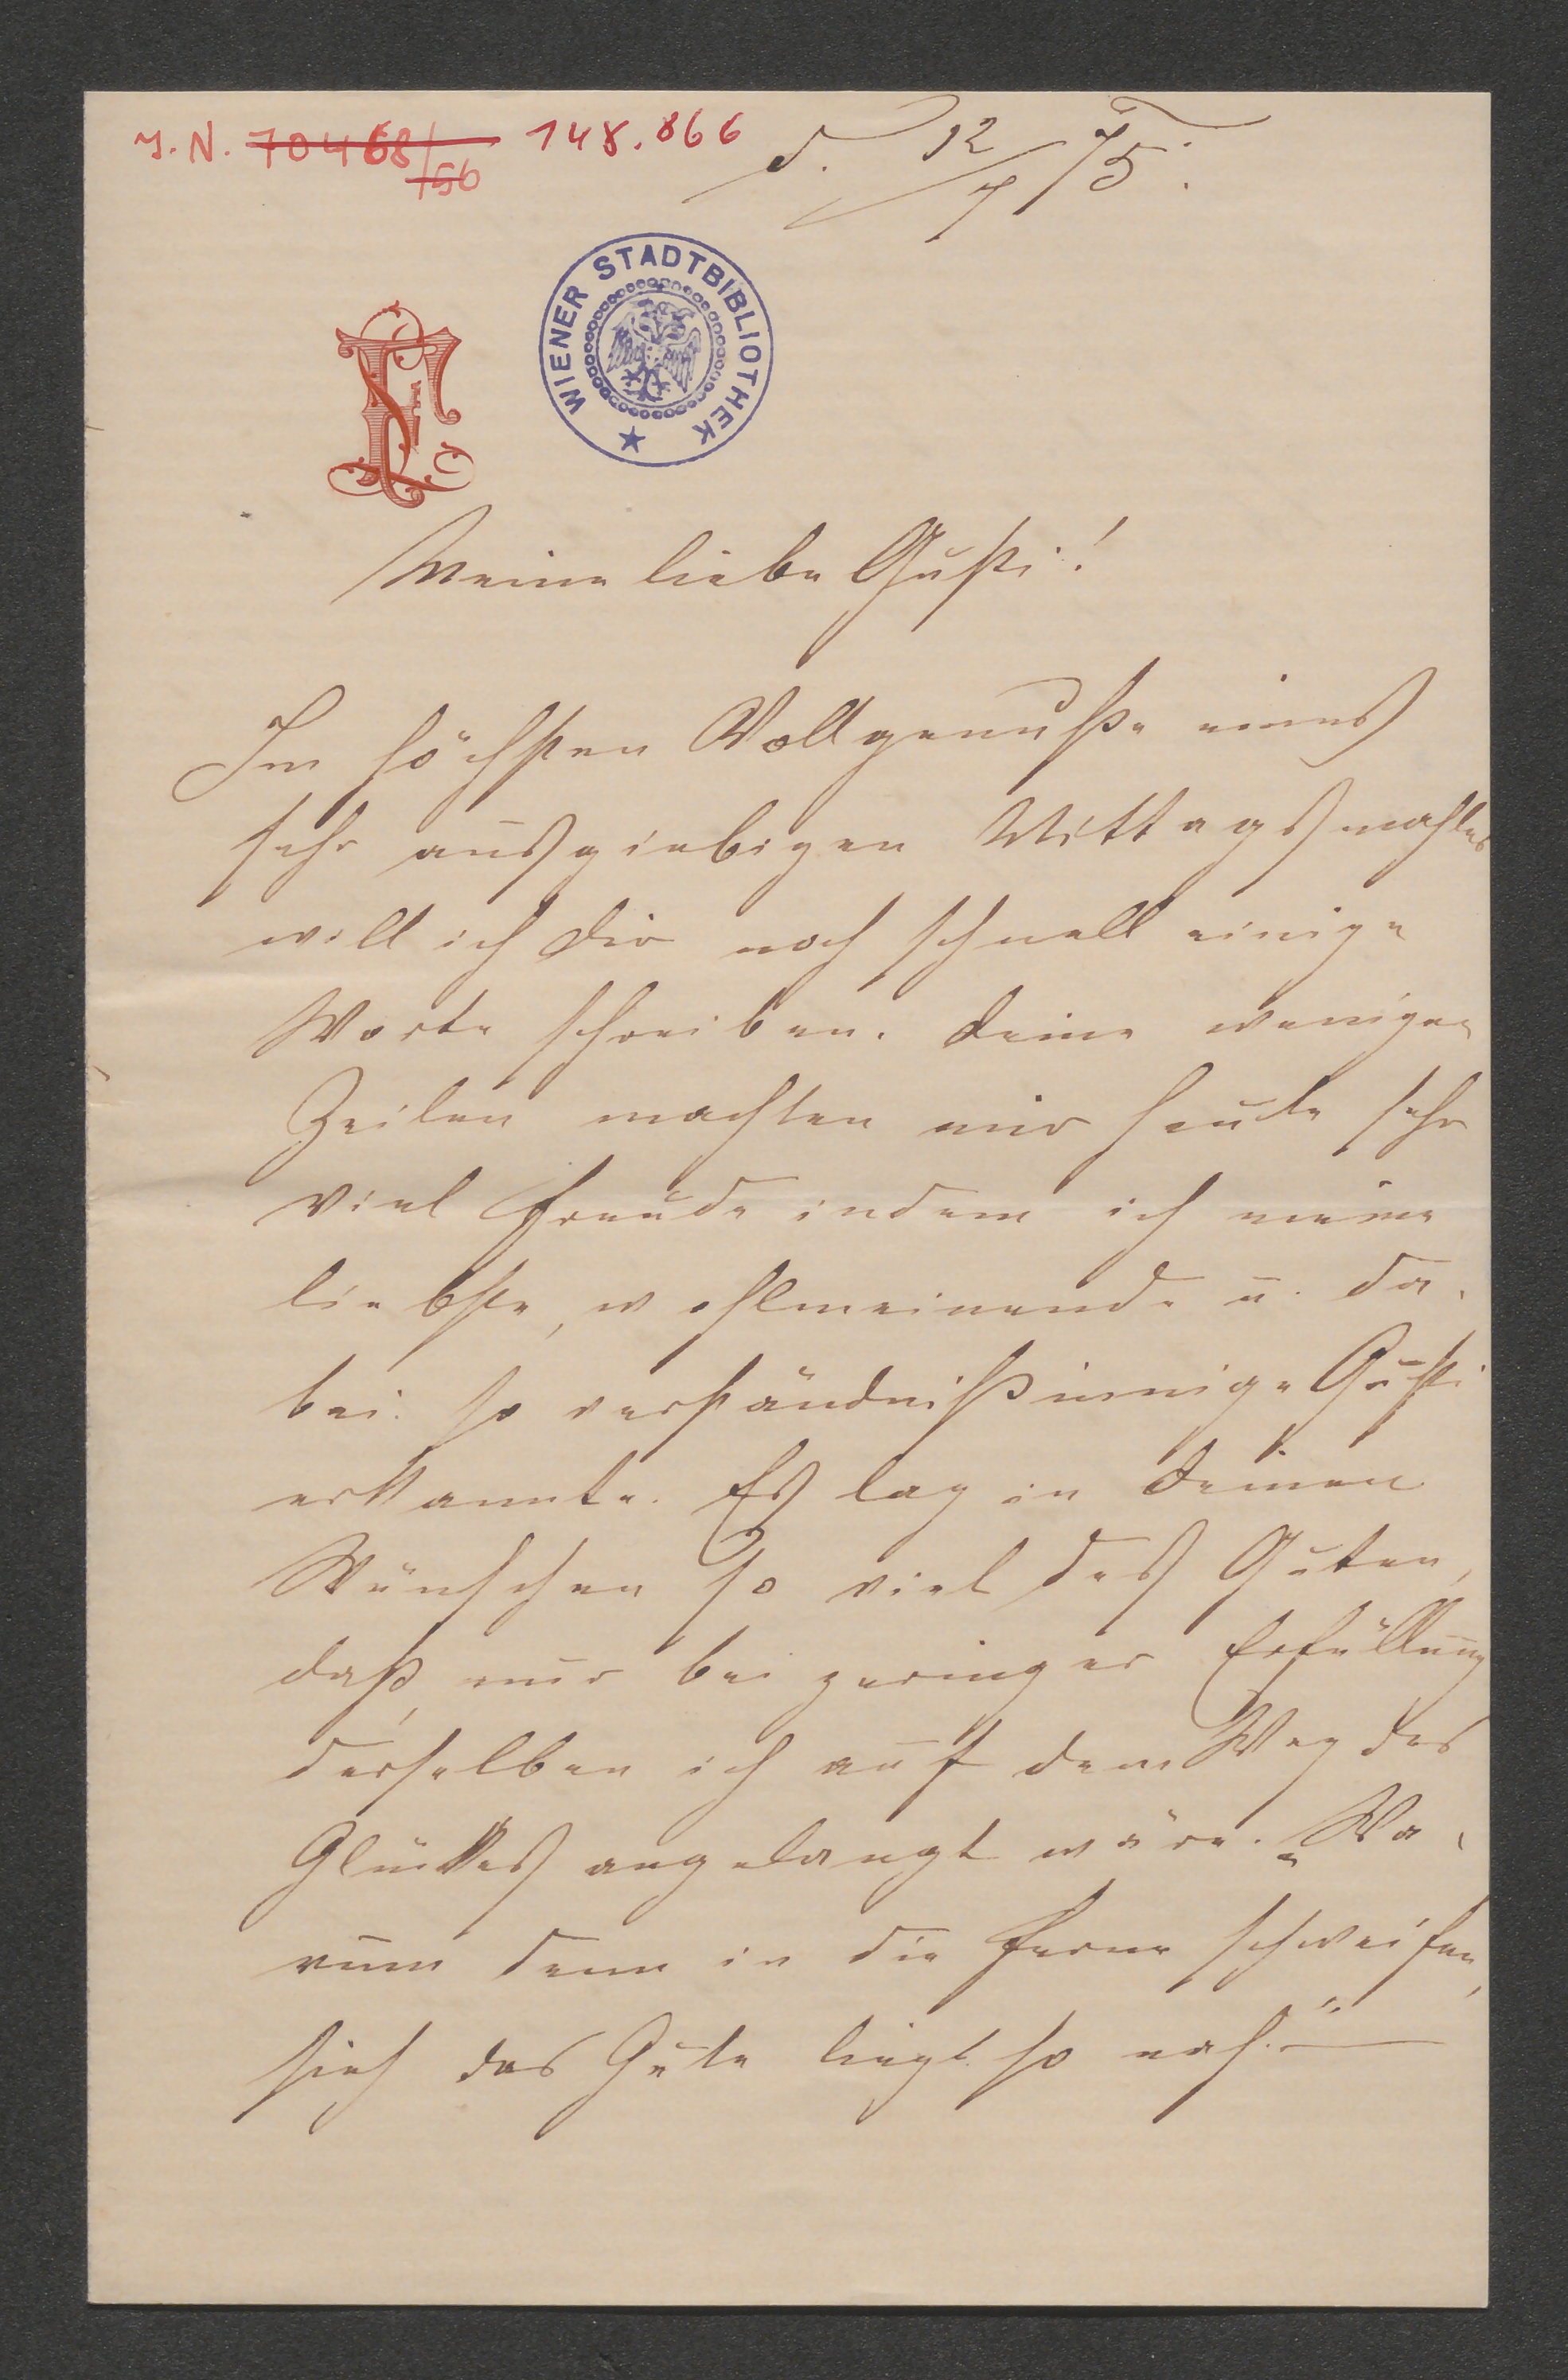 J. N. 70468/
156
148.866
d. 12/7 75.
WIENER STADTBIBLIOTHEK
Meine liebe Gusti!
Im höchsten Vollgenuße eines
sehr ausgiebigen Mittagsmahles
will ich dir noch schnell einige
Worte schreiben. Deine wenigen
Zeilen machten mir heute sehr
viel Freude indem ich meine
liebste, wohlmeinende u. da-
bei so verständnißinnige Gusti
erkannte. Es lag in deinen
Wünschen so viel des Guten,
daß, nur bei geringer Erfüllung
derselben ich auf dem Weg des
Glückes angelangt wäre. „Wa-
rum denn in die Ferne schweifen,
sieh das Gute liegt so nah.“ —